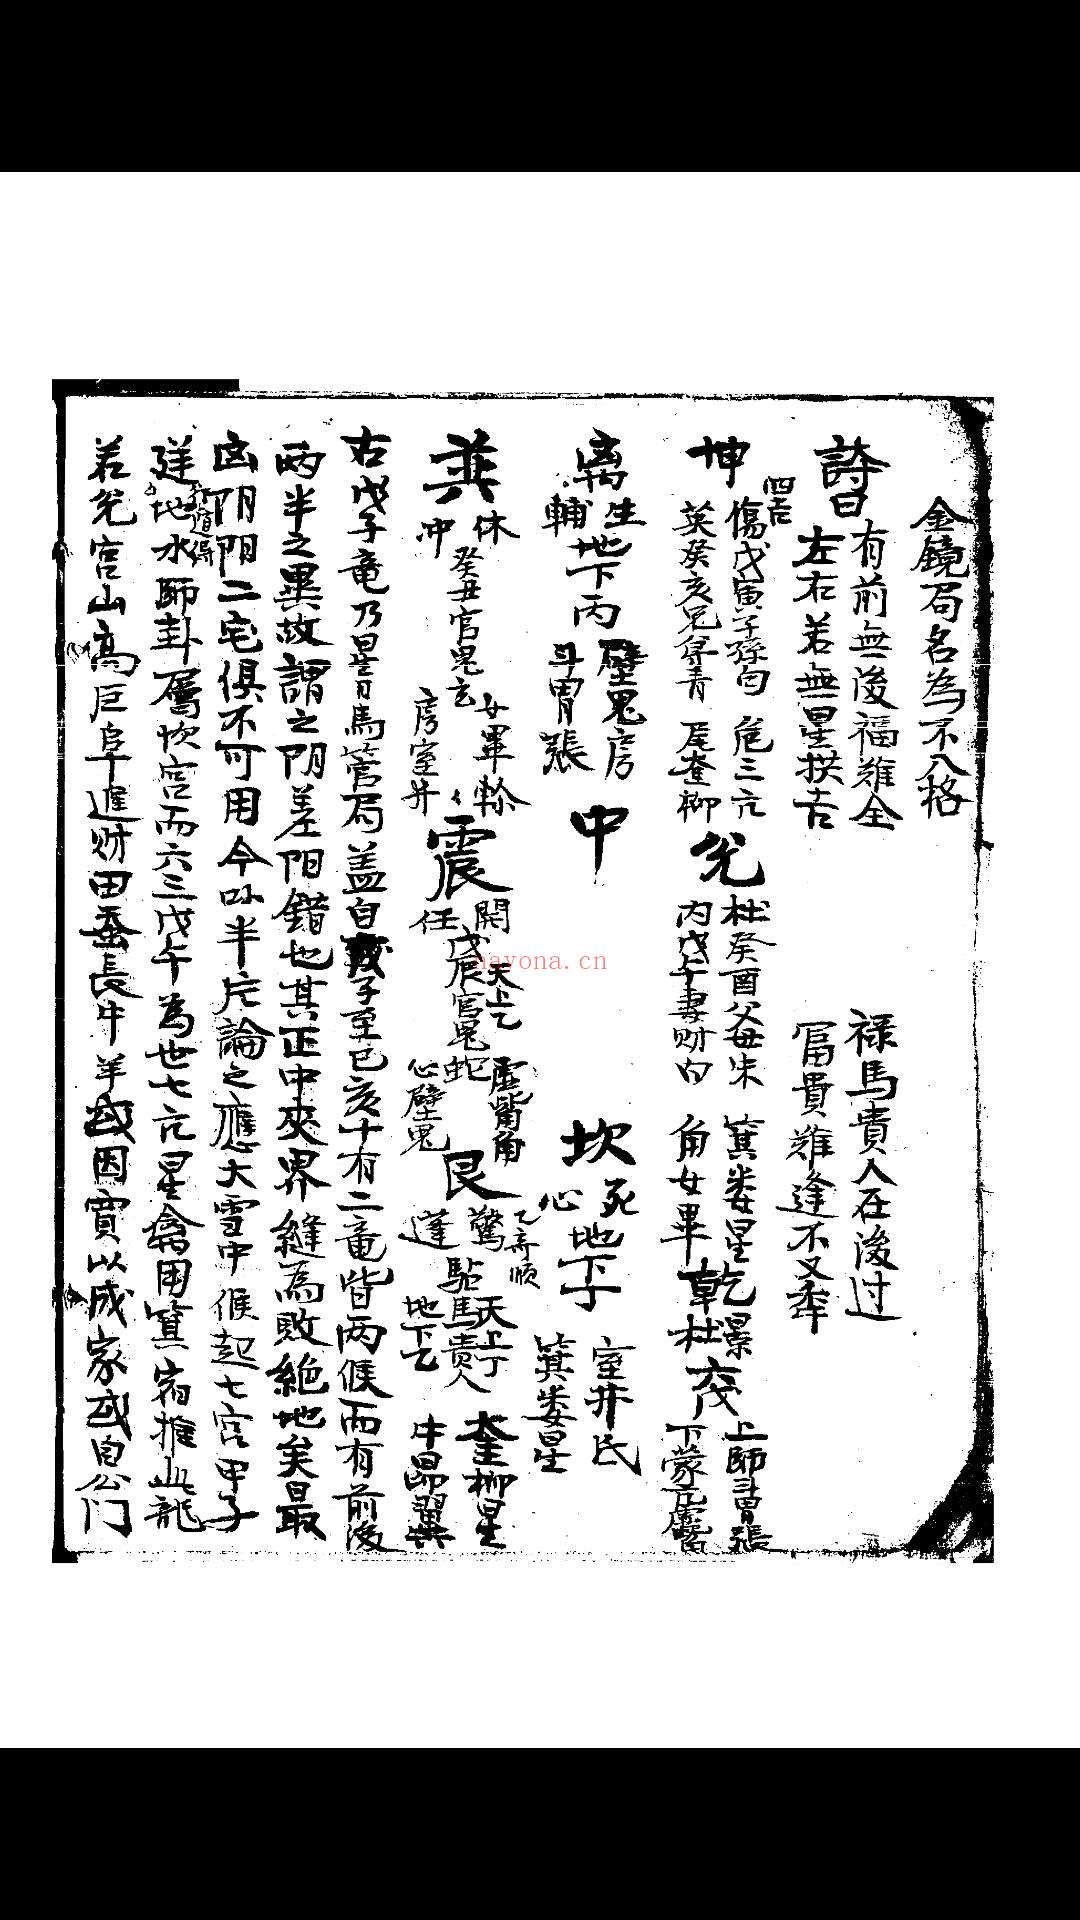 金鏡局名為不入格
詩曰
有前無後福难全
祿馬貴人在後过
左右若無星拱吉
富貴难逢不又牽
坤
四吉
傷戊寅子孫勾
危三亢
英癸亥兄弟青
尾奎柳
兊
杜癸酉父母朱
箕娄星
丙戊午妻財勾
角女畢
乾
景
杜
戊
上師
斗胃張
下蒙
虛觜
离
生
輔
地下丙
壁鬼房
斗胃張
中
坎
死
心
地下子
室井氏
箕娄星
巽
休
冲
癸丑官鬼玄
女畢軫
房室井
震
開
任
戊辰官鬼蛇
天上乙
虛觜角
心壁鬼
艮
驚
蓬
乙奇順
馹馬貴人
天上丁
地下乙
奎柳星
牛昴翼
右戊子竜乃星日馬管局盖自戊子至巳亥十有二竜皆两候而有前後
两半之異故謂之阴差阳錯也其正中夾界縫為敗絶地矣最
凶阴阳二宅俱不可用今以半片論之應大雪中候起七宮甲子
地水師卦屬坎宮而六三戊午為世七亢星禽用箕宿推此龍
若兊宮山高巨阜進财田蚕長牛羊或因賈以成家或自公门
nayona.cn